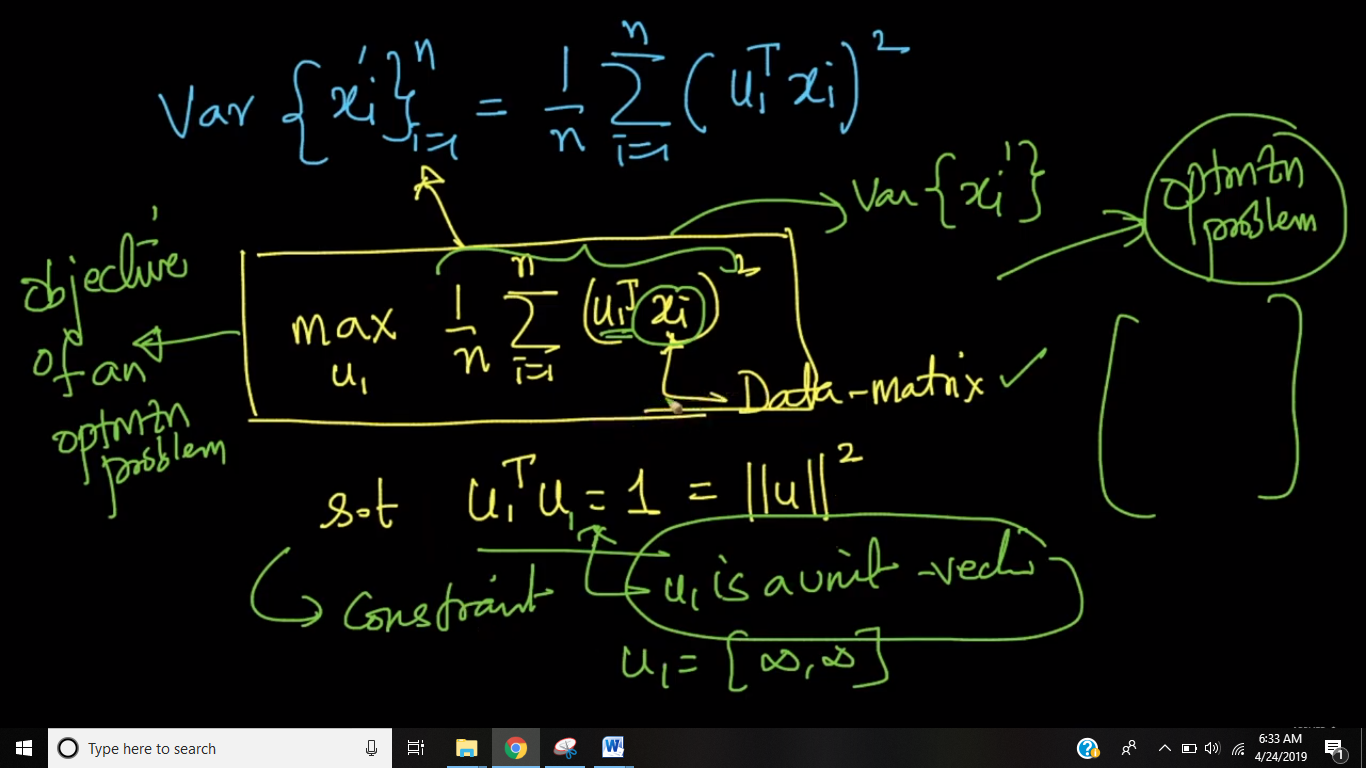 Var {xi'}ⁿi=1 = 1/n Σⁿi=1 (u1ᵀ xi)²
Var {xi'}
optmzn
problem
objective
of an
optmzn
problem
max u1 1/n Σⁿi=1 (u1ᵀ xi)²
Data-matrix ✓
s.t u1ᵀ u1 = 1 = ||u||²
Constraint
u1 is a unit-vect
u1 = [∞, ∞]
Type here to search
6:33 AM
4/24/2019
1